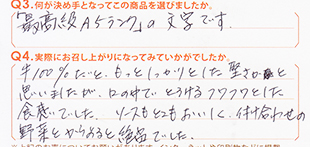 Q3.何が決め手となってこの商品を選びましたか。
「最高級A5ランク」の文字です。
Q4.実際にお召し上がりになってみていかがでしたか。
牛100%だと、もっとしっかりとした堅さかと
思いましたが、口の中でとろけるフワフワとした
食感でした。ソースもとてもおいしく、付け合わせの
野菜とからめると絶品でした。